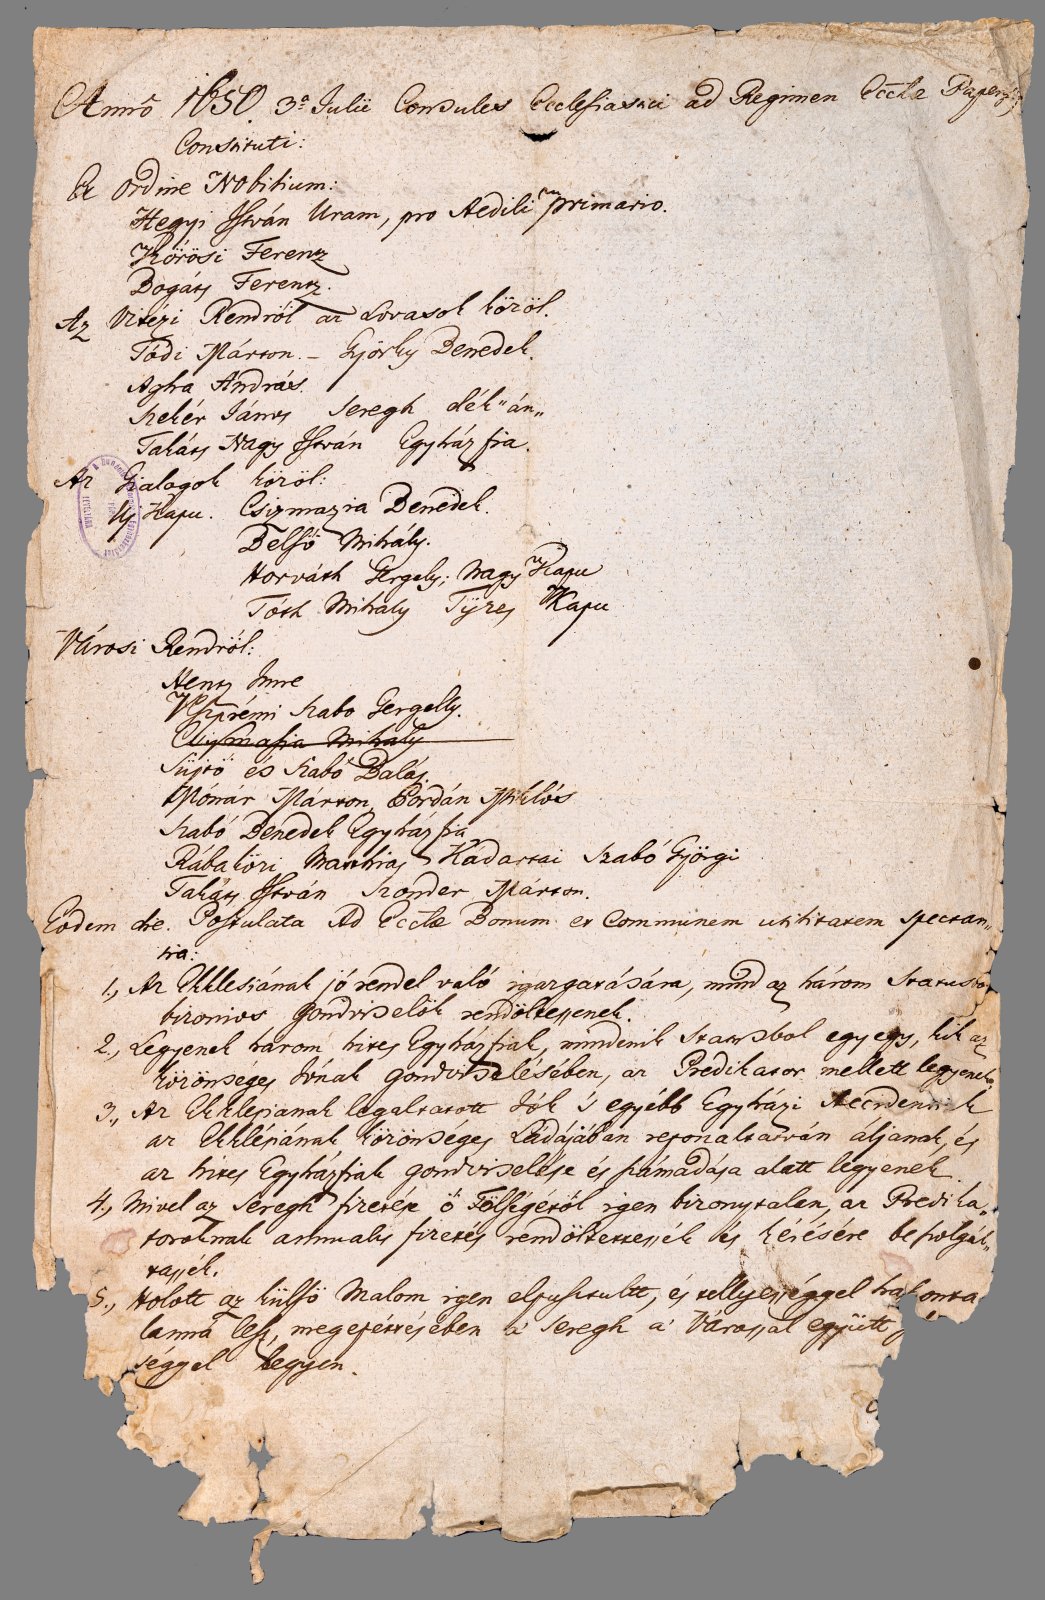 Anno 1650. 3ª Julii Consules Ecclesiastici ad Regimen Eccłæ Papens.
Constituti:
Ex ordine Nobilium:
Hegyi István Uram, pro Aedili primario.
Körösi Ferenz
Bogáts Ferentz.
Az Vitézi Rendről az Lovasok közöl.
Tódi Márton. – Györky Benedek.
Agha András.
Szekér János Seregh dék"án"
Takáts Nagy István Egyház fia.
Az Gialogok közöl:
Uj Kapu. Csizmazia Benedek.
Belső Mihály.
Horváth Gergely; Nagy Kapu
Tóth Mihály Tÿzes Kapu
Városi Rendről:
Hentz Imre
Veszprémi Szabo Gergelly.
Csismasia Mihaly
Süjtő és Szabó Balás.
Mónár Márton, Bordán Miklós
Szabó Benedek Egyház fia
Rábaközi Matthias Kadartai Szabó Györgi
Takáts István Szonder Márton.
Eodem die. Postulata Ad Eccłæ Bonum et Communem utilitatem spectan„
tia:
1., Az Ekklesiának jó rendel való igazgatására, mind az három Statusbol
bizonios gondviselök rendöltessenek.
2., Legyenek három hites Egyházfiak, mindenik Statusbol egy egy, kik az
közönséges Jónak gondviselésében, az Predikator mellett legyenek.
3., Az Ekklesianak legaltatott Jók s egyébb Egyházi
az Ekklésiának közönséges Ládájában reponaltatván áljanak, és
az hites Egyházfiak gondviselése és számadása alatt légyenek.
4., Mivel az Seregh fizetése ő Fölségétől igen bizonytalan, az Predika„
toroknak annualis fizetés rendöltessessék és kérésére beszolgál„
tassék.
5., Holott az külső Malom igen elpusztultt, és tellyességgel haszonta
lanná lesz, megepéttésében a' Seregh a' Várossal együtt
séggel legyen.